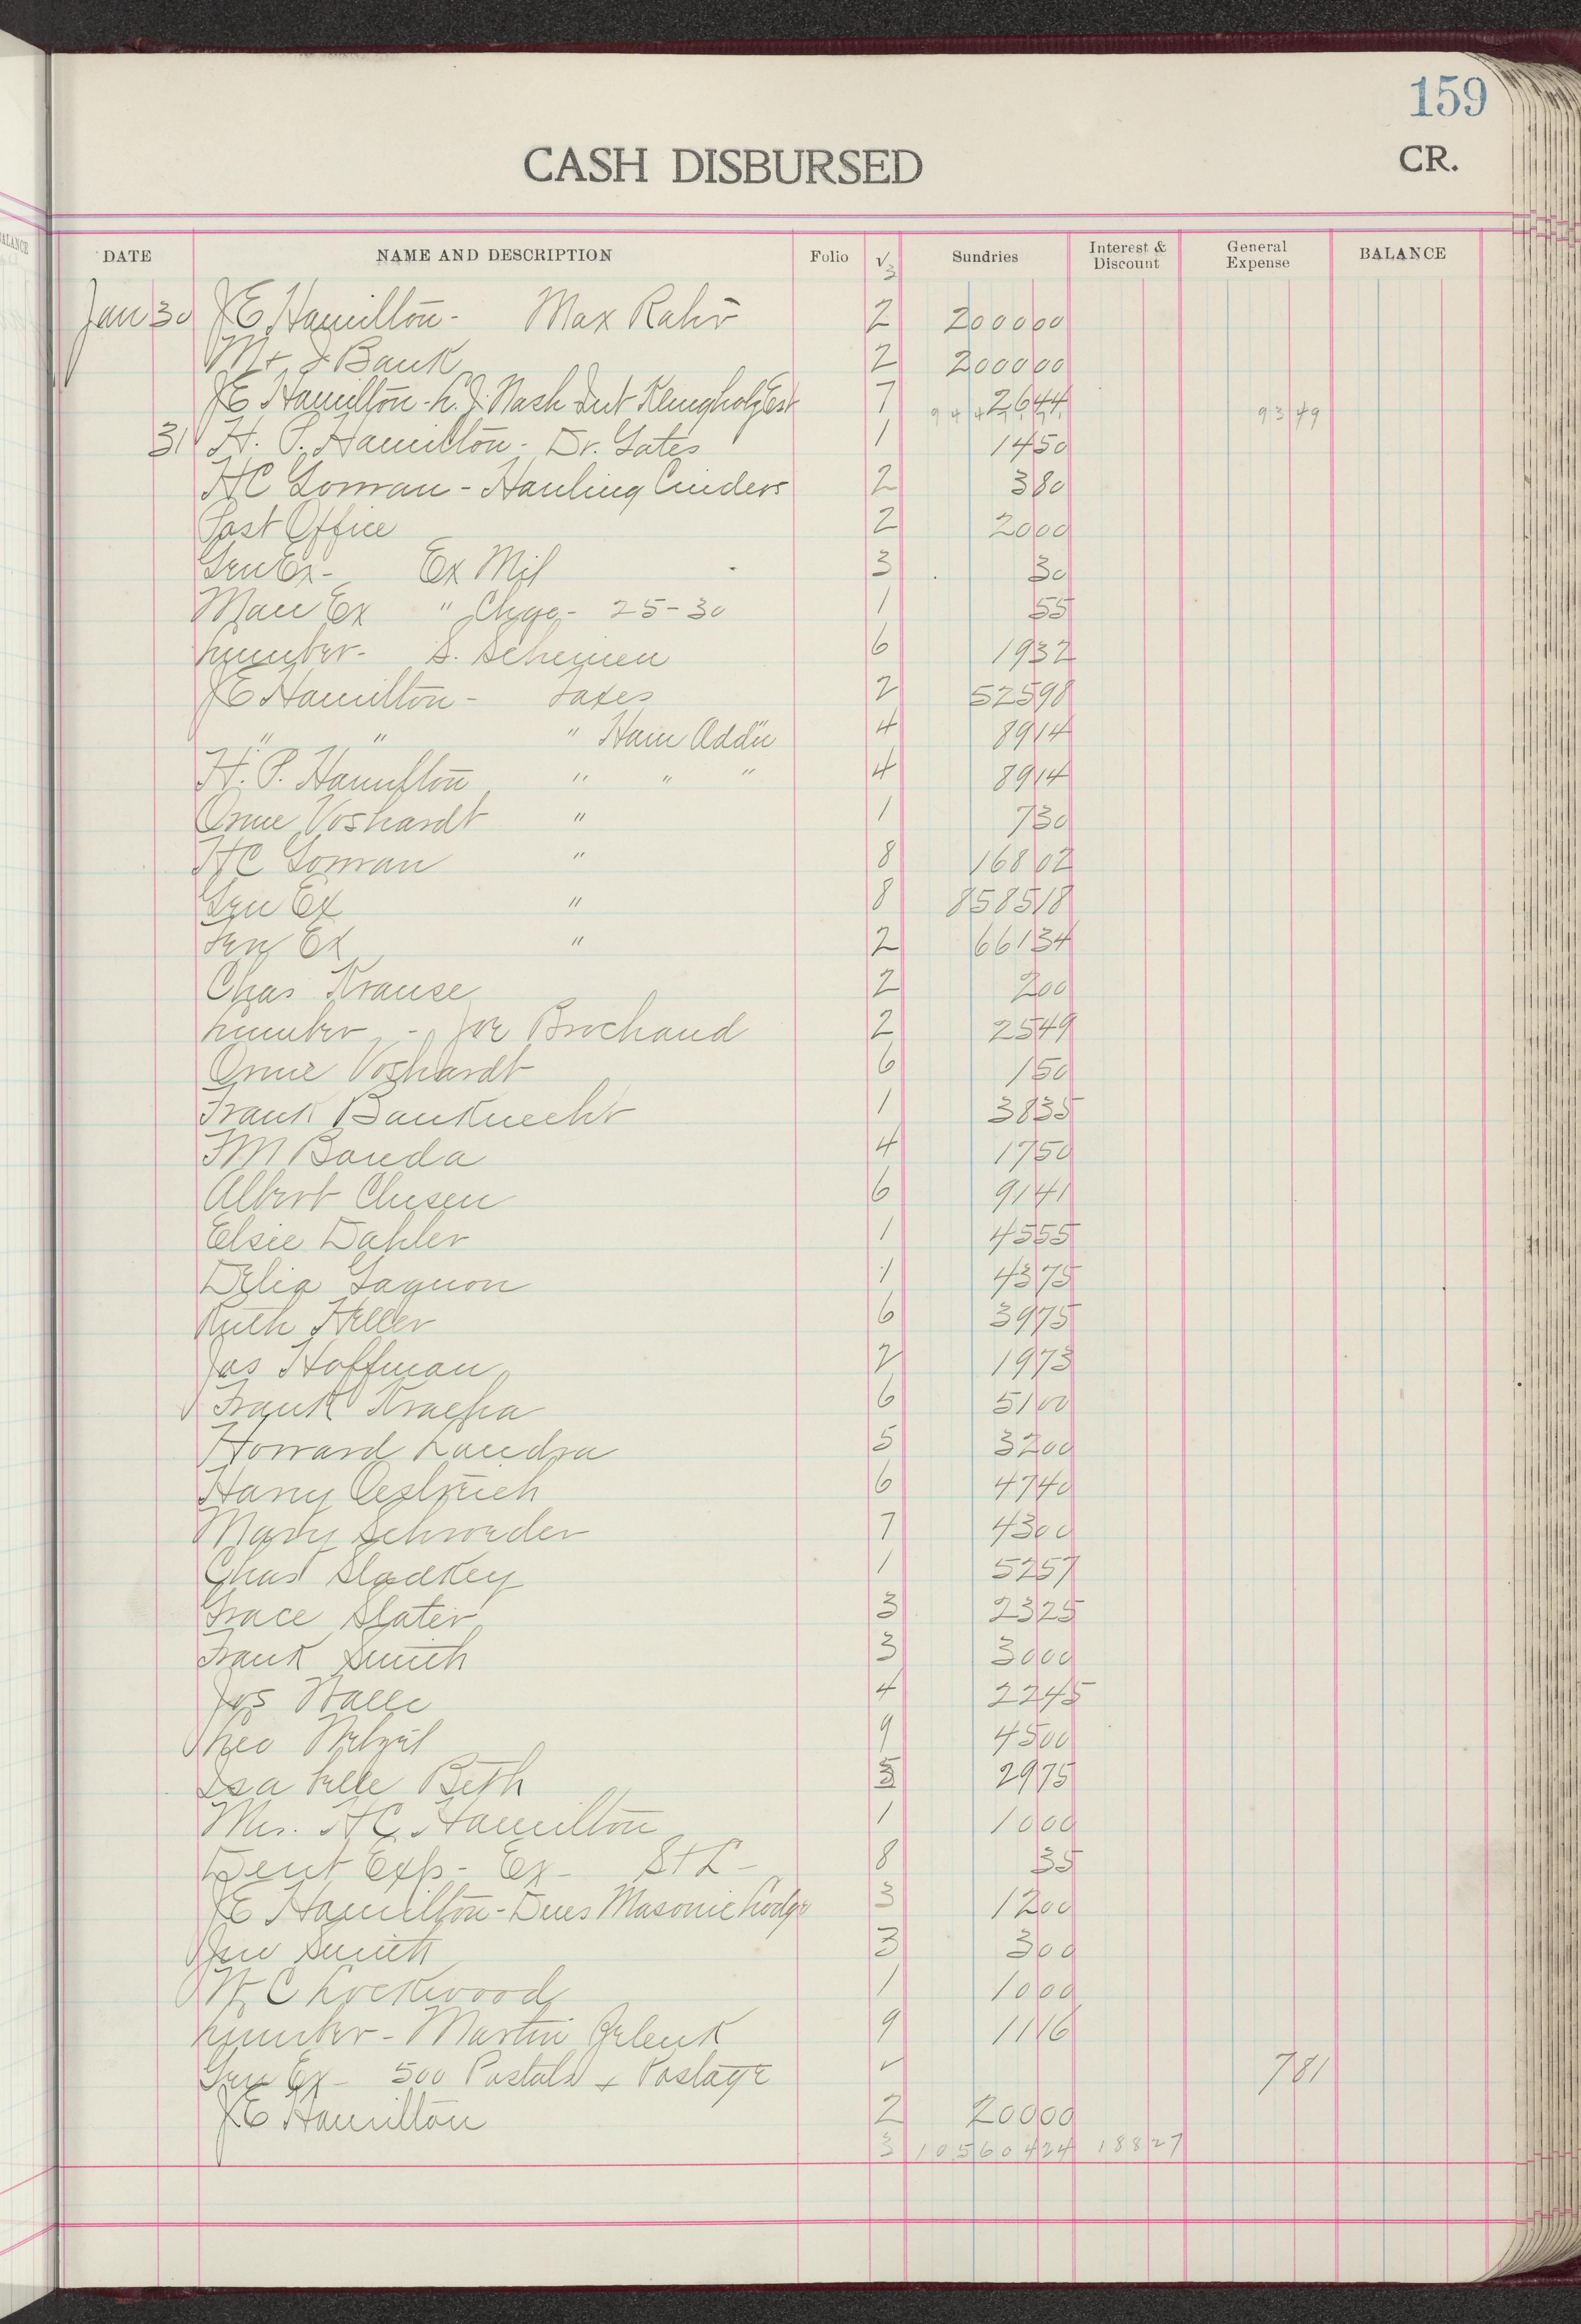 159
CASH DISBURSED
CR.
DATE NAME AND DESCRIPTION Folio V 3 Sundries Interest & Discount General Expense BALANCE
Jan 30 JE Hamilton - Max Rahr 2 2000 00
M + J Bank 2 2000 00
JE Hamilton - L. J. Nash Int Klingholz Est 7 26 44 93 49
31 H. P. Hamilton - Dr. Gates 1 14 50
HC Goman - Hauling Cinders 2 3 80
Post Office 2 20 00
Gen Ex - Ex Mil 3 30
Man Ex " Chgo - 25-30 1 55
Lumber - S. 6 19 32
JE Hamilton - Taxes 2 525 98
" " " Ham Addn 4 89 14
H. P. Hamilton " " " 4 89 14
Orme Voshardt " 1 7 30
HC Goman " 8 168 02
Gen Ex " 8 8585 18
Ten Ex " 2 661 34
Chas Krause 2 2 00
Lumber - Joe Brochaud 2 25 49
Orme Voshardt 6 1 50
Frank Bauknecht 1 38 35
FM Bouda 4 17 50
Albert Clusen 6 91 41
Elsie Dahler 1 45 55
Delia Gagnon 1 43 75
Ruth Heller 6 39 75
Jas Hoffman 2 19 73
Frank Kracha 6 51 00
Howard Landra 5 32 00
Harry Oestreich 6 47 40
Mary Schroeder 7 43 00
Chas Sladkey 1 52 57
Grace Slater 3 23 25
Frank Smith 3 30 00
Jos Walle 4 22 45
Theo Wetzel 9 45 00
Isabelle Beth 29 75
Mrs. HC Hamilton 1 10 00
Dent Exp - Ex - St L - 8 35
JE Hamilton - Dues Masonic Lodge 3 12 00
Jno Smith 3 3 00
W C Lockwood 1 10 00
Lumber - Martin 9 11 16
Gen Ex - 500 Postals + Postage ✓ 7 81
JE Hamilton 2 200 00
3 105604 24 188 27